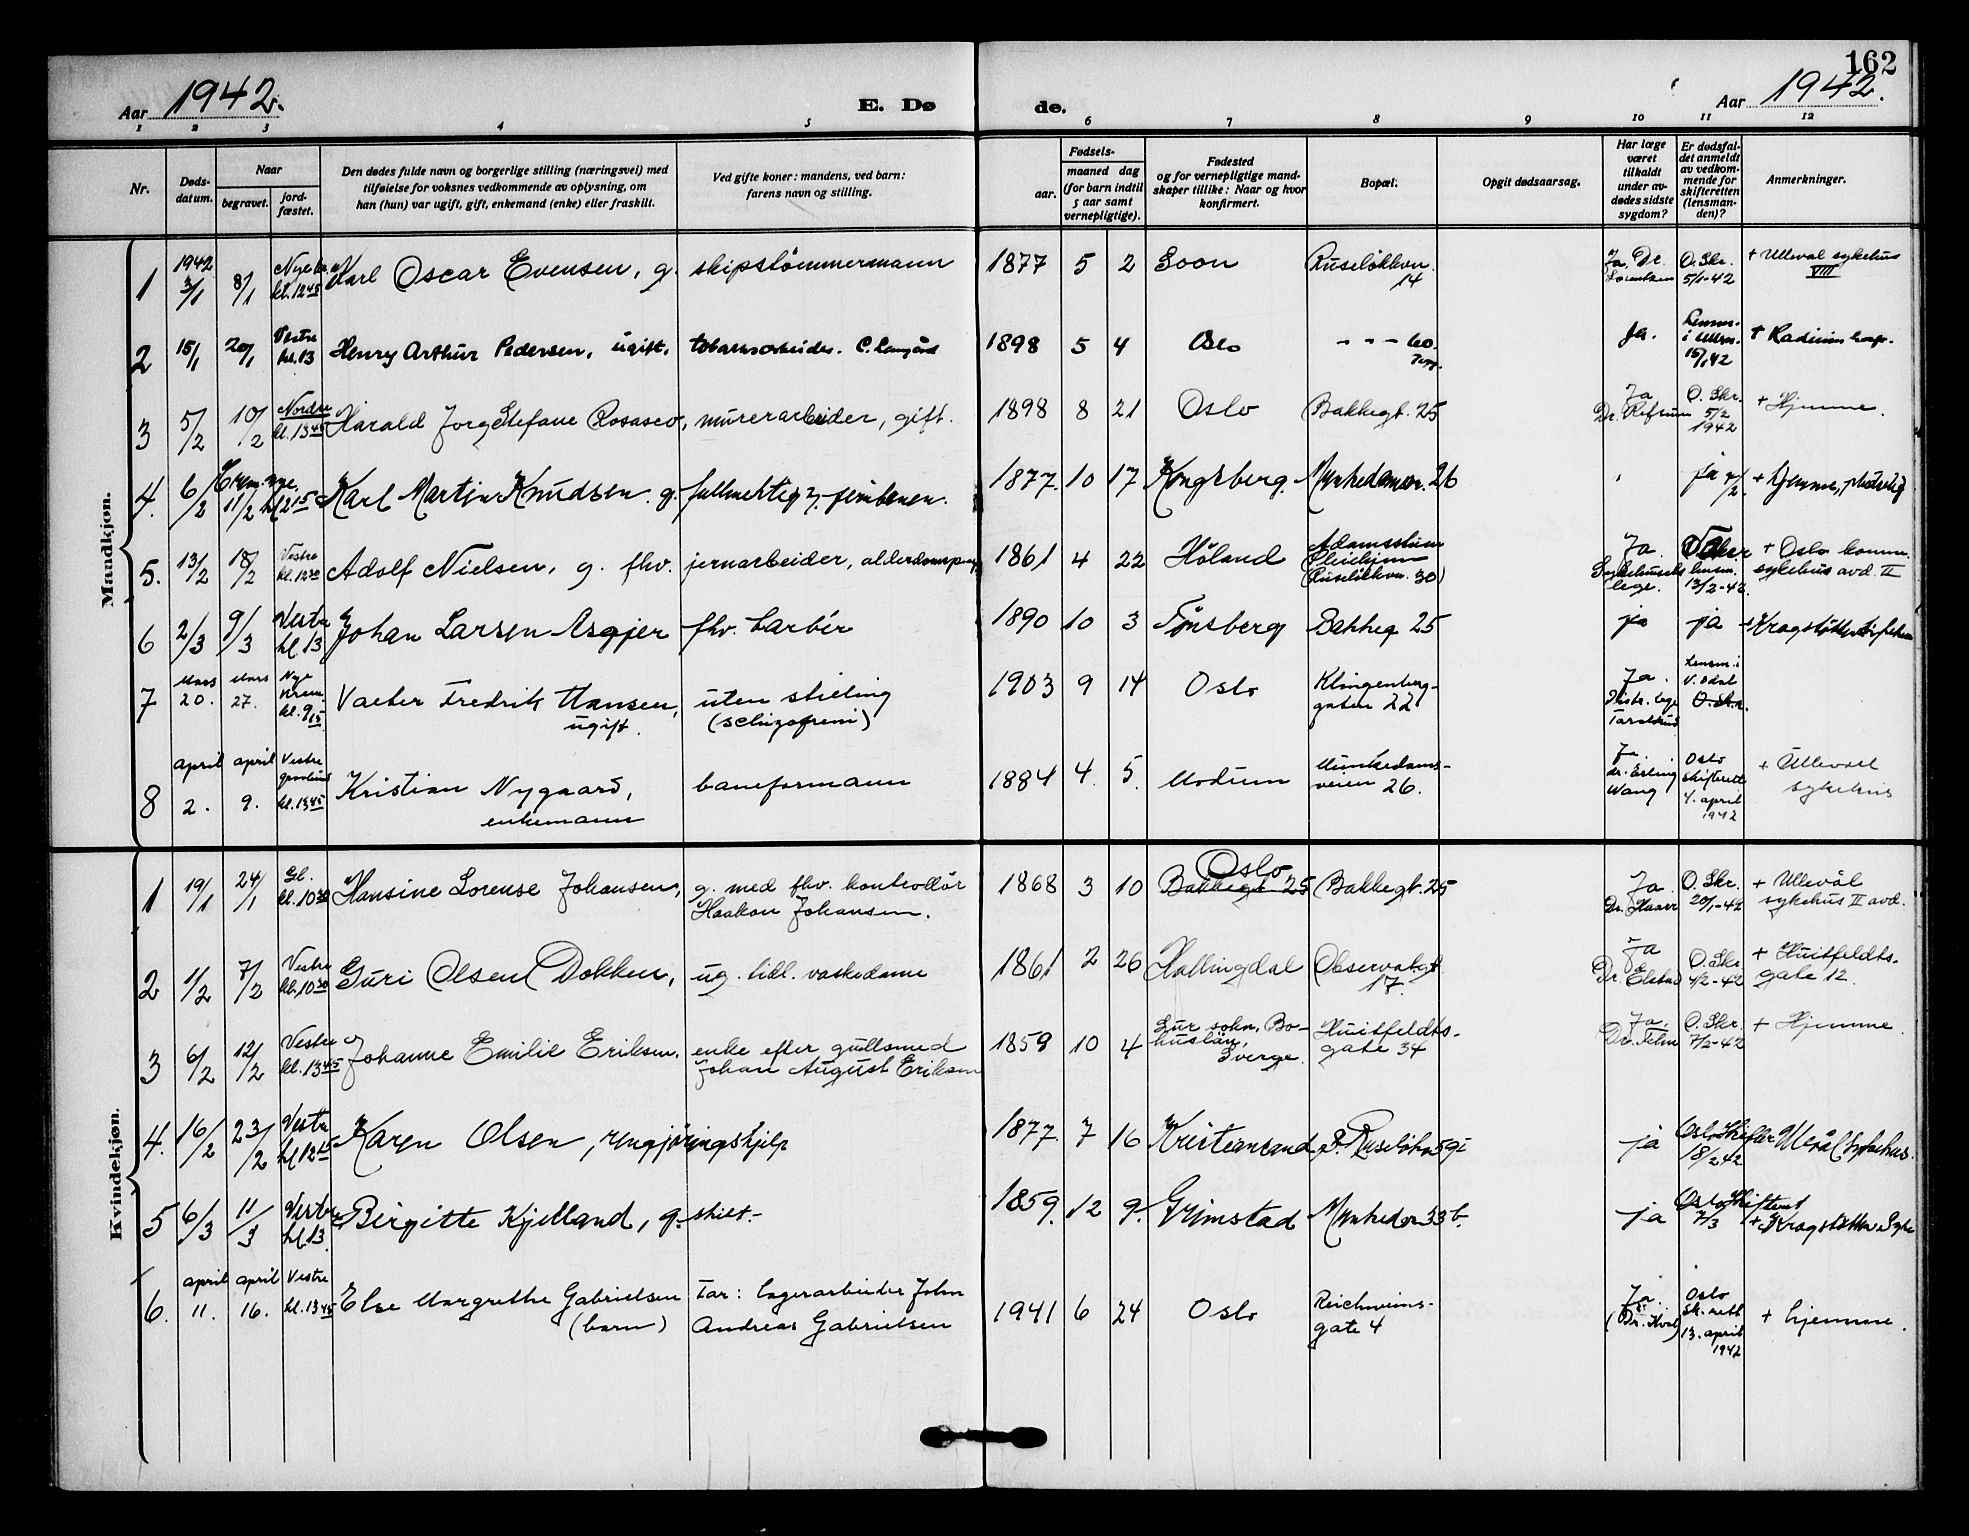 162
Aar 1942.
E. Døde.
Aar 1942.
1 2 3 4 5 6 7 8 9 10 11 12
Nr.
Døds-
datum.
Naar
begravet.
jord-
fæstet.
Den dødes fulde navn og borgerlige stilling (næringsvei) med
tilføielse for voksnes vedkommende av oplysning, om
han (hun) var ugift, gift, enkemand (enke) eller fraskilt.
Ved gifte koner: mandens, ved barn:
farens navn og stilling.
Fødsels-
aar.
maaned dag
(for barn indtil
5 aar samt
vernepligtige).
Fødested
og for vernepligtige mand-
skaper tillike: Naar og hvor
konfirmert.
Bopæl.
Opgit dødsaarsag.
Har læge
været
tilkaldt
under av-
dødes sidste
sygdom?
Er dødsfal-
det anmeldt
av vedkom-
mende for
skifteretten
(lensman-
den)?
Anmerkninger.
Mandkjøn.
1 1942 3/1 8/1 kl. 12 45 Karl Oscar Evensen, g. skipstömmermann 1877 5 2 Soon Ruselökkvn. 14 Ja, Dr. O. Skr. 5/1-42 + Ullevål sykehus VIII
2 15/1 20/1 Vestre kl. 13 Henry Arthur Pedersen, ugift. 1898 5 4 Oslo - - - 60. Ja. Lensm. i 15/1 42 + Radium hosp.
3 5/2 10/2 Nordre kl. 13 45 Harald Jorg Stefane Rosasco, mürerarbeider, gift. 1898 8 21 Oslo Bakkegt. 25 Ja Dr. Refsum O. Skr. 5/2 1942 + Hjemme.
4. 6/2 11/2 Krem. nye. kl 12 15 Karl Martin Knudsen. g. fullmektig v. 1877. 10 17 Kongsberg. Munkedamsv. 26 ja 7/2. + hjemme, plutselig
5. 13/2 18/2 Vestre kl. 12 30 Adolf Nielsen, g. fhv. jernarbeider, 1861 4 22 Höland Adamsstuen Pleiehjem (Ruselökkvn. 30) Ja. Sykehusets lege. lensm. 13/2-42. + Oslo komm. sykehus avd. II
6 2/3 9/3 Vestre kl 13 Johan Larsen Asgjer fhv. barbér 1890 10 3 Tønsberg Bakkeg 25 ja ja
7 Mars 20. Mars 27. Nye krem. kl. 9 15 Valter Fredrik Hansen, ugift. uten stilling (schizofreni) 1903 9 14 Oslo Klingenberg-
gaten 22 Ja. Distr. lege Lensm. i V. Odal O. Skr.
8 april 2. april 9. Vestre gravlund kl. 13 45 Kristian Nygaard, enkemann baneformann 1884 4. 5. Modum Munkedams-
veien 26. Ja. dr. Erling Wang Oslo skifterett 4. april 1942 + Ullevål sykehus
Kvindekjøn.
1 19/1 24/1 Gl. kl. 10 30 Hansine Lorense Johansen, g. med fhv. kontrollör
Haakon Johansen. 1868 3 10 Oslo Bakkegt 25 Bakkegt. 25 Ja. Dr. Haavr O. Skr. 20/1-42 + Ullevål sykehus II avd.
2 1/2 7/2 Vestre kl. 10 30 Guri Olsen Dokken, ug. tidl. vaskedame 1861 2 26 Hallingdal Observat.gt. 17. Ja Dr. Elstad O. Skr 4/2-42 + Huitfeldts-
gate 12.
3 6/2 12/2 Vestre kl. 13 45 Johanne Emilie Eriksen. enke efter gullsmed
Johan August Eriksen 1859 10 4 Lur sokn, Bo-
huslän, Sverge. Huitfeldts-
gate 34 Ja. O. Skr. 7/2-42 + Hjemme.
4. 16/2 23/2 Vestre kl 12 15 Karen Olsen, rengjøringshjelp 1877. 7 16 Kristiansand S. ja 18/2 42 Ulevål Sykehus.
5 6/3 11/3 Vestre kl 13. Birgitte Kjelland, g. skilt.- 1859. 12 9. Grimstad Munkedv 33 b. ja Oslo Skifterett 7/3 + Kragstøtten Syke
6. april 11. april 16. Vestre kl. 13 45 Else Margrethe Gabrielsen
(barn) Far: lagerarbeider John
Andreas Gabrielsen 1941 6 24 Oslo Reichweins-
gate 4 Ja. Oslo Sk. rett 13. april 1942 + hjemme.